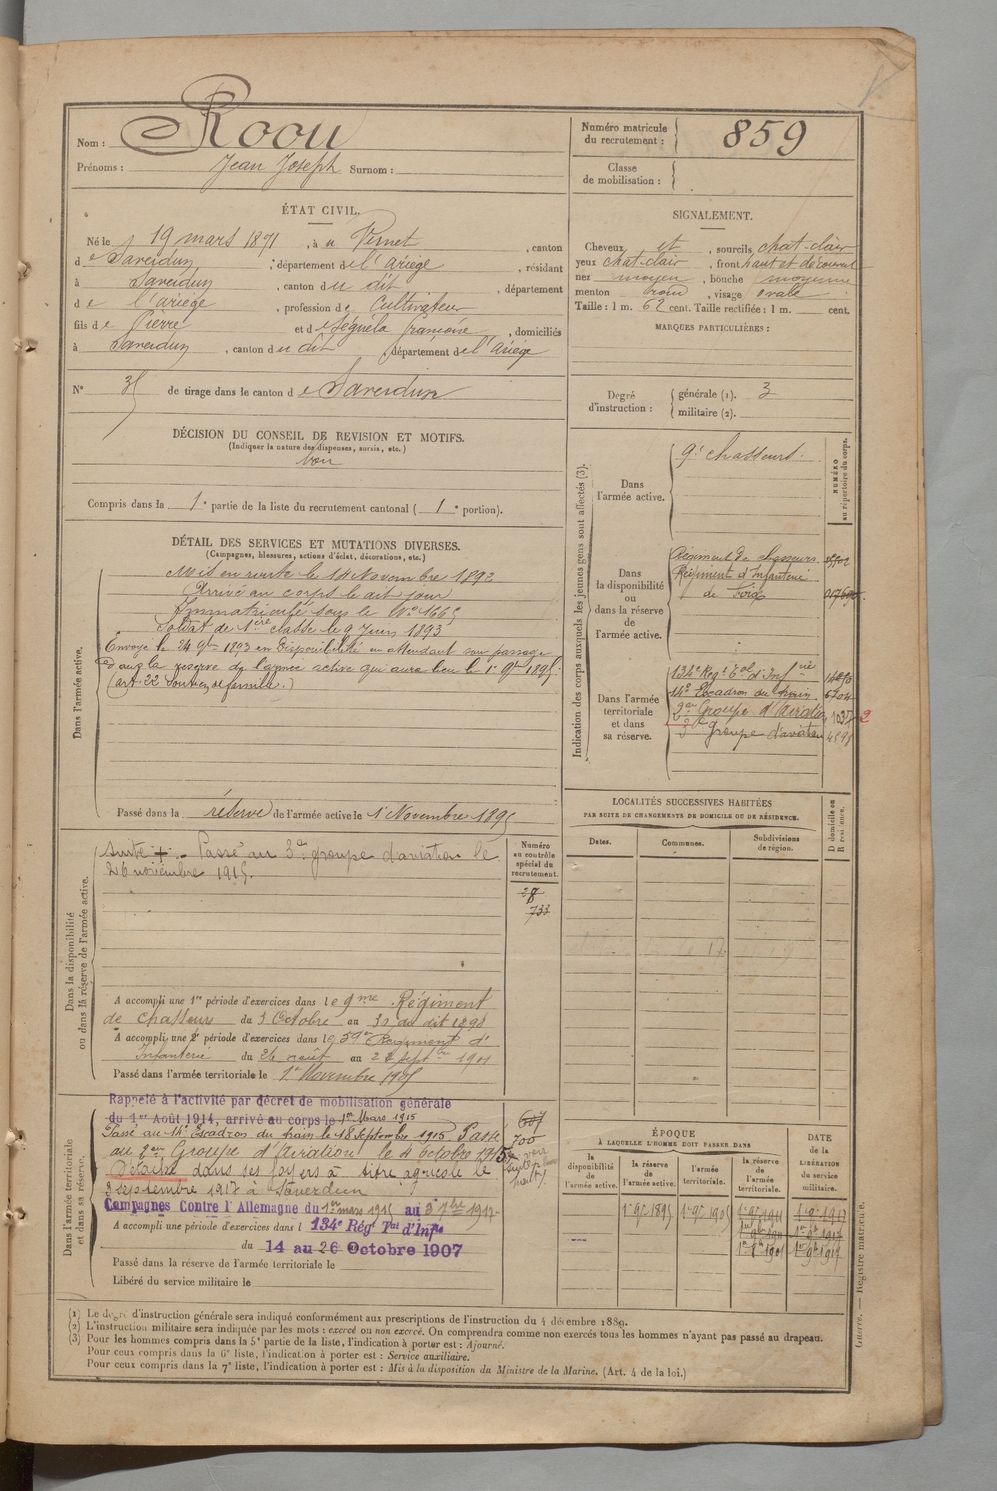 Nom : Roou
Prénoms : Jean Joseph Surnom :
Numéro matricule du recrutement : 859
Classe de mobilisation :
ÉTAT CIVIL.
Né le 19 mars 1871, à u Vernet, canton
d e Saverdun, département de l'Ariège, résidant
à Saverdun, canton du dit, département
d e l'ariège, profession de Cultivateur
fils de Pierre et de Séguéla françoise, domiciliés
à Saverdun, canton du dit, département de l'Ariège
N° 35 de tirage dans le canton de Saverdun
SIGNALEMENT.
Cheveux et, sourcils chat-clair
yeux chat-clair, front haut et découvert
nez moyen, bouche moyenne
menton rond, visage ovale
Taille : 1 m. 62 cent. Taille rectifiée : 1 m. cent.
MARQUES PARTICULIÈRES :
Degré d'instruction : générale (1). 3
militaire (2).
DÉCISION DU CONSEIL DE REVISION ET MOTIFS.
(Indiquer la nature des dispenses, sursis, etc.)
bon
Compris dans la 1e partie de la liste du recrutement cantonal ( 1e portion).
DÉTAIL DES SERVICES ET MUTATIONS DIVERSES.
(Campagnes, blessures, actions d'éclat, décorations, etc.)
Dans l'armée active.
Mis en route le 14 Novembre 1892
Arrivé au corps le dit jour
Immatriculé sous le N° 1665
Soldat de 1ère classe le 9 Juin 1893
Envoyé le 24 9bre 1893 en Disponibilité en attendant son passage
dans la réserve de l'armée active qui aura lieu le 1er 9bre 1895.
(art. 22 Soutien de famille.)
Passé dans la réserve de l'armée active le 1er Novembre 1895
Indication des corps auxquels les jeunes gens sont affectés (3).
NUMÉRO au répertoire du corps.
Dans l'armée active.
9e chasseurs.
Dans la disponibilité ou dans la réserve de l'armée active.
Régiment de chasseurs
Régiment d'Infanterie
de Foix
Dans l'armée territoriale et dans sa réserve.
134e Regt Tal d'Infie
14e Escadron du Train
2e Groupe d'Aviation
3e groupe d'aviation
LOCALITÉS SUCCESSIVES HABITÉES
PAR SUITE DE CHANGEMENTS DE DOMICILE OU DE RÉSIDENCE.
Dates. Communes. Subdivisions de région. D domicile ou R résidence.
Dans la disponibilité ou dans la réserve de l'armée active.
Numéro au contrôle spécial du recrutement.
28
733
Suite + - Passé au 3e groupe d'aviation le
26 novembre 1915.
A accompli une 1re période d'exercices dans le 9me Régiment
de chasseurs du 3 Octobre au 30 du dit 1898
A accompli une 2e période d'exercices dans le 59e Régiment d'
Infanterie du 26 août au 22 septbre 1901
Passé dans l'armée territoriale le 1er Novembre 1905
Dans l'armée territoriale et dans sa réserve.
Rappelé à l'activité par décret de mobilisation générale
du 1er Août 1914, arrivé au corps le 1er Mars 1915
Passé au 14e Escadron du train le 18 septembre 1915 Passé
au 2e Groupe d'Aviation le 4 octobre 1915
Détaché dans ses foyers à titre agricole le
3 septembre 1917 à Saverdun
Campagnes Contre l'Allemagne du 1er mars 1915 au 3 7bre 1917
A accompli une période d'exercices dans l 134e Rég Tal d'Infie
du 14 au 26 Octobre 1907
Passé dans la réserve de l'armée territoriale le
Libéré du service militaire le
700
ÉPOQUE
À LAQUELLE L'HOMME DOIT PASSER DANS
la disponibilité de l'armée active. la réserve de l'armée active. l'armée territoriale. la réserve de l'armée territoriale.
DATE de la LIBÉRATION du service militaire.
1er 9bre 1895 1er 9bre 1905 1er 9bre 1911 1er 9bre 1917
Guerre. — Registre matricule.
(1) Le degré d'instruction générale sera indiqué conformément aux prescriptions de l'instruction du 4 décembre 1889.
(2) L'instruction militaire sera indiquée par les mots : exercé ou non exercé. On comprendra comme non exercés tous les hommes n'ayant pas passé au drapeau.
(3) Pour les hommes compris dans la 5e partie de la liste, l'indication à porter est : Ajourné.
Pour ceux compris dans la 6e liste, l'indication à porter est : Service auxiliaire.
Pour ceux compris dans la 7e liste, l'indication à porter est : Mis à la disposition du Ministre de la Marine. (Art. 4 de la loi.)